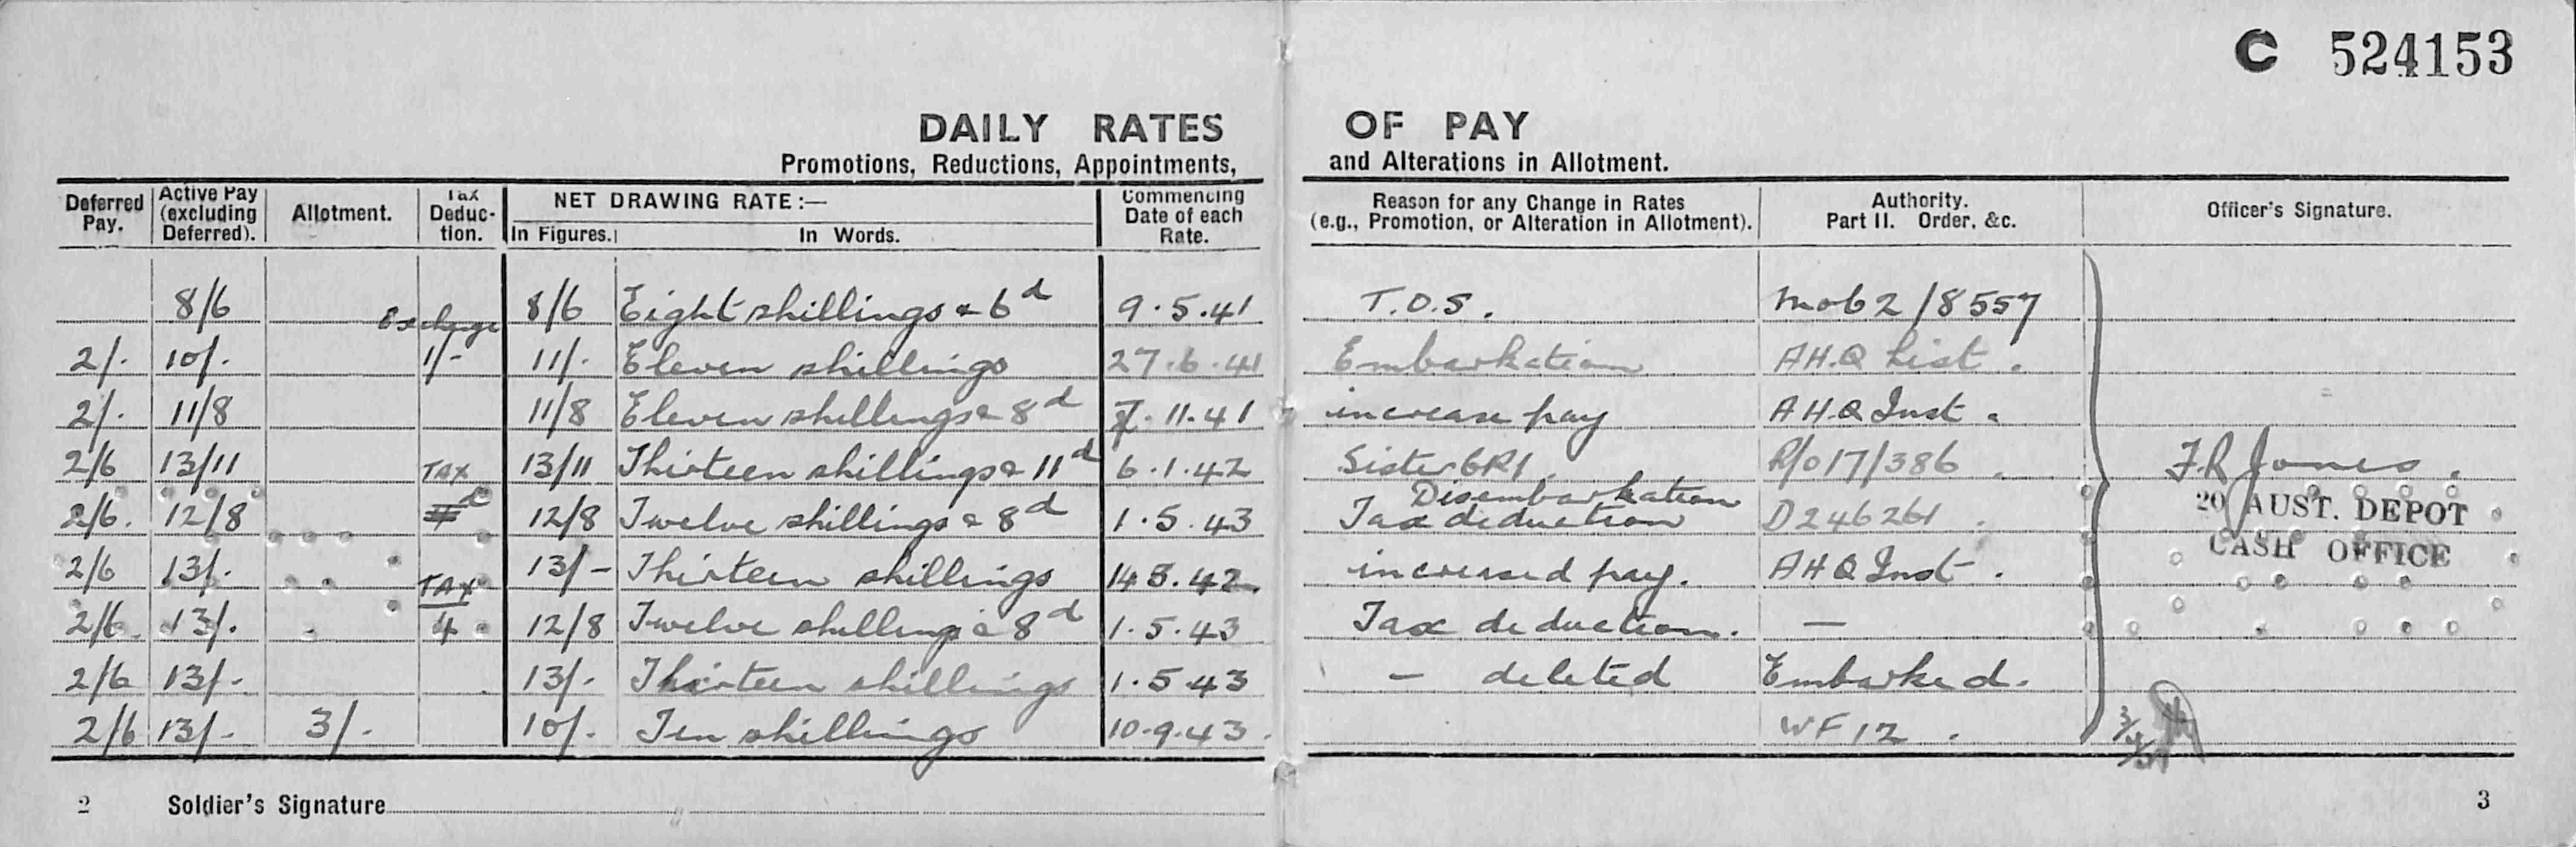 C 524153
DAILY RATES OF PAY
Promotions, Reductions, Appointments, and Alterations in Allotment.
Deferred Pay. Active Pay (excluding Deferred). Allotment. Tax Deduction. NET DRAWING RATE:— In Figures. In Words. Commencing Date of each Rate. Reason for any Change in Rates (e.g., Promotion, or Alteration in Allotment). Authority. Part II. Order, &c. Officer's Signature.
8/6 8/6 Eight shillings & 6d 9.5.41 T.O.S. Mob 2/8557
Exchange
2/- 10/- 1/- 11/- Eleven shillings 27.6.41 Embarkation A.H.Q List.
2/- 11/8 11/8 Eleven shillings & 8d 7.11.41 increase pay A.H.Q Inst.
2/6 13/11 TAX 13/11 Thirteen shillings & 11d 6.1.42 Sister GR1. R/o 17/386 F.R Jones.
Disembarkation
2/6. 12/8 d 12/8 Twelve shillings & 8d 1.5.43 Tax deduction D246261 20 AUST. DEPOT
CASH OFFICE
2/6 13/- TAX 13/- Thirteen shillings 42. increased pay. AHQ Inst.
2/6. 13/- 4 12/8 Twelve shillings & 8d 1.5.43 Tax deduction. —
2/6 13/- 13/- Thirteen shillings 1.5.43 - deleted Embarked.
2/6 13/- 3/- 10/- Ten shillings 10.9.43. WF12.
2 Soldier's Signature
3